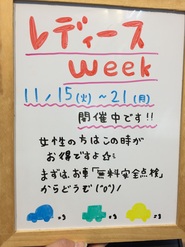 レディース
week
11/15(火)~21(月)
開催中です!!
女性の方はこの時が
お得ですよ☆彡
まずは、お車「無料安全点検」
からどうぞ(^o^)/